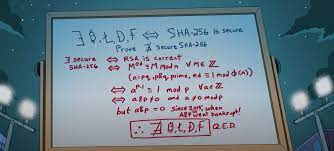 ∃ Q,Ł,D,F ⟺ SHA-256 is secure
Prove ∄ secure SHA-256
∃ secure SHA-256 ⟺ RSA is correct
⟺ M^ed ≡ M mod n ∀ M ∈ ℤ
(n=pq, p&q prime, ed ≡ 1 mod φ(n))
⟺ a^p-1 ≡ 1 mod p ∀a∈ℤ
⟺ a&p≠0 and a≠0 mod p
but a&p = 0 since 2015, when
A&P went bankrupt!
∴ ∄ Q,Ł,D,F Q.E.D.